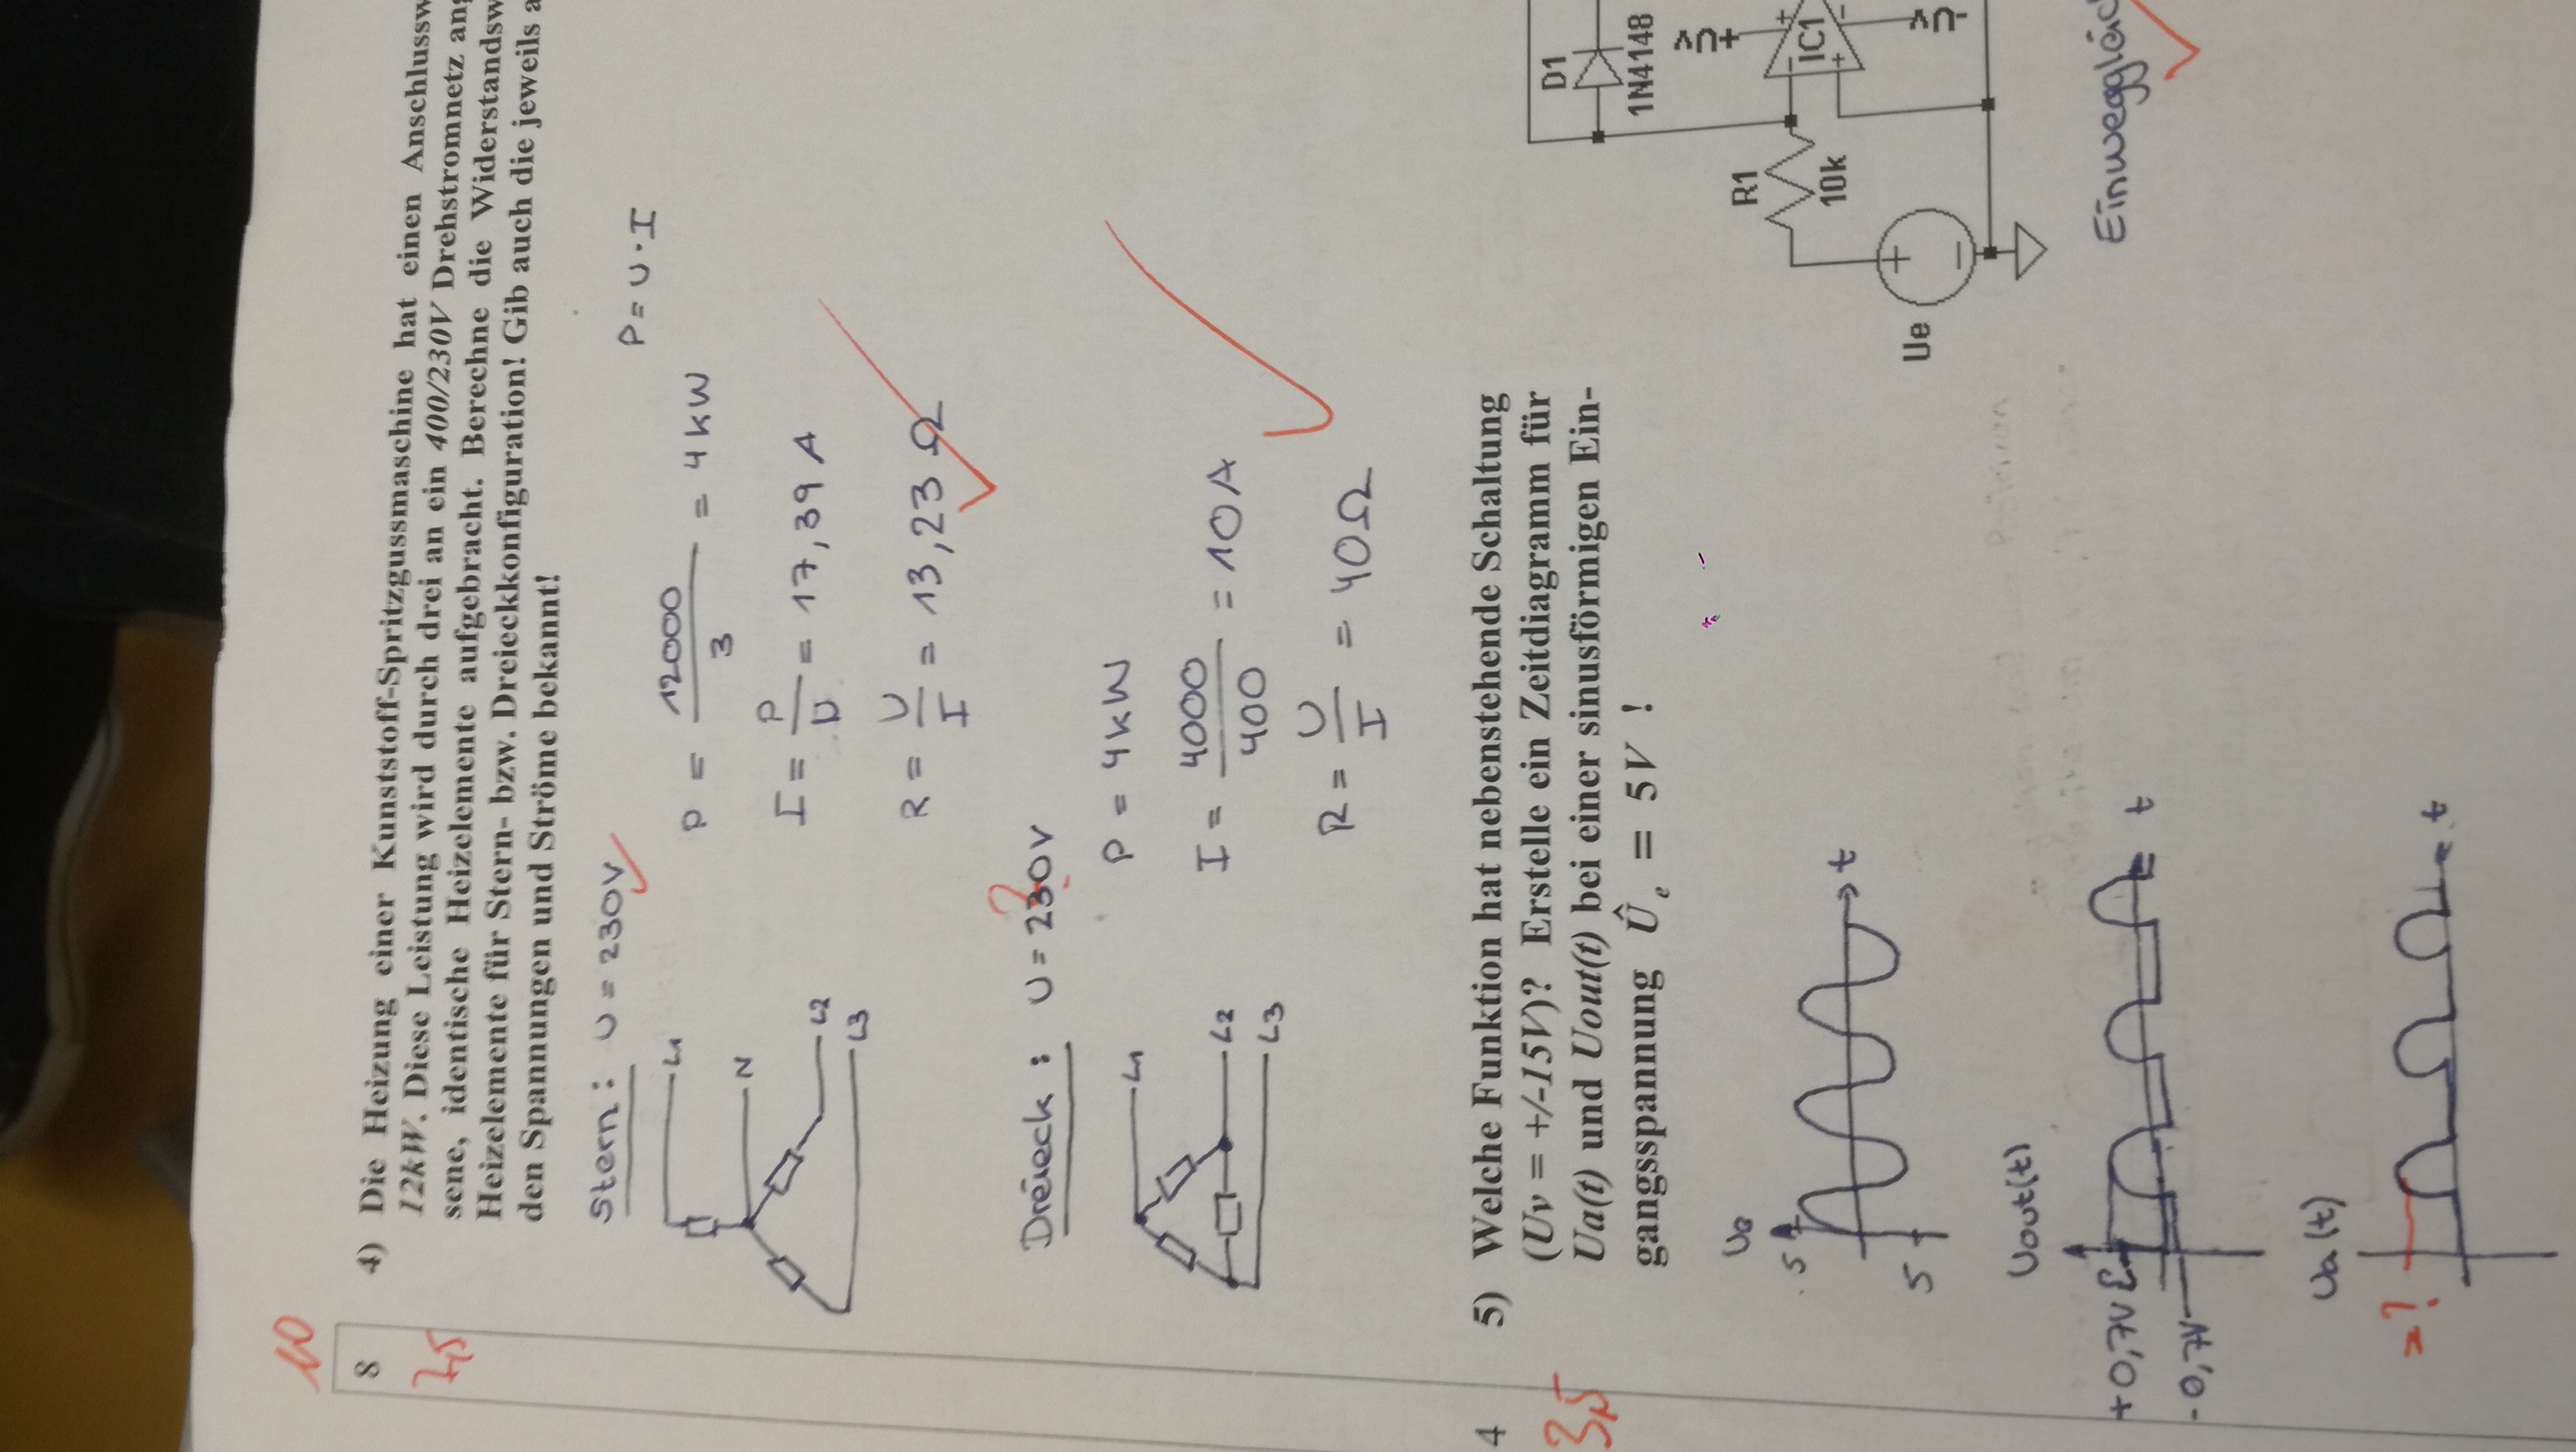 10
8
7,5
4) Die Heizung einer Kunststoff-Spritzgussmaschine hat einen
12kW. Diese Leistung wird durch drei an ein 400/230V Drehstromnetz
sene, identische Heizelemente aufgebracht. Berechne die
Heizelemente für Stern- bzw. Dreieckkonfiguration! Gib auch die jeweils
den Spannungen und Ströme bekannt!
Stern: U = 230V
P = U · I
L1
N
L2
L3
P = 12000 / 3 = 4 kW
I = P / U = 17,39 A
R = U / I = 13,23 Ω
Dreieck: U = 230V
?
L1
L2
L3
P = 4kW
I = 4000 / 400 = 10A
R = U / I = 40Ω
4
3,5
5) Welche Funktion hat nebenstehende Schaltung
(Uv = +/-15V)? Erstelle ein Zeitdiagramm für
Ua(t) und Uout(t) bei einer sinusförmigen Ein-
gangsspannung Û e = 5V !
D1
1N4148
R1
10k
IC1
Ue
Ue
5
5
t
Uout(t)
+0,7V
-0,7V
t
Ua(t)
=?
t